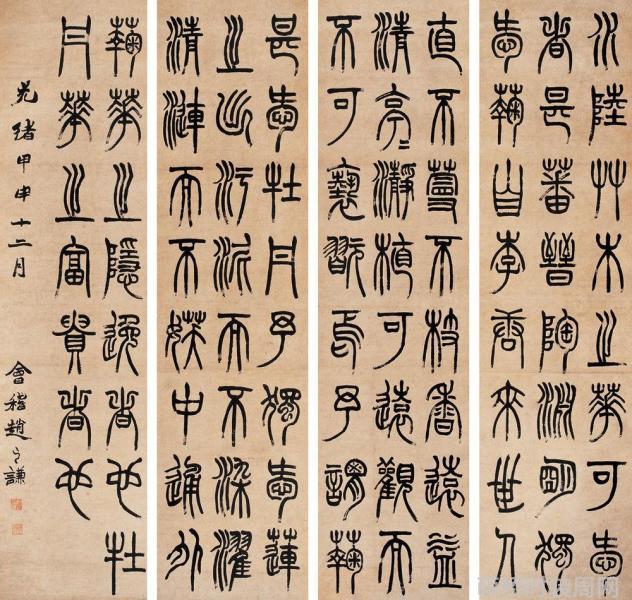 水陸艸木之華可愛
者甚蕃晉陶淵明獨
愛蘜自李唐來世人
直不蔓不枝香遠益
清亭〻瀞植可遠觀而
不可褻翫焉予謂蘜
甚愛牡丹予獨愛蓮
之出淤泥而不染濯
清漣而不妖中通外
蘜華之隱逸者也牡
丹華之富貴者也
光緒甲申十二月
會稽趙之謙